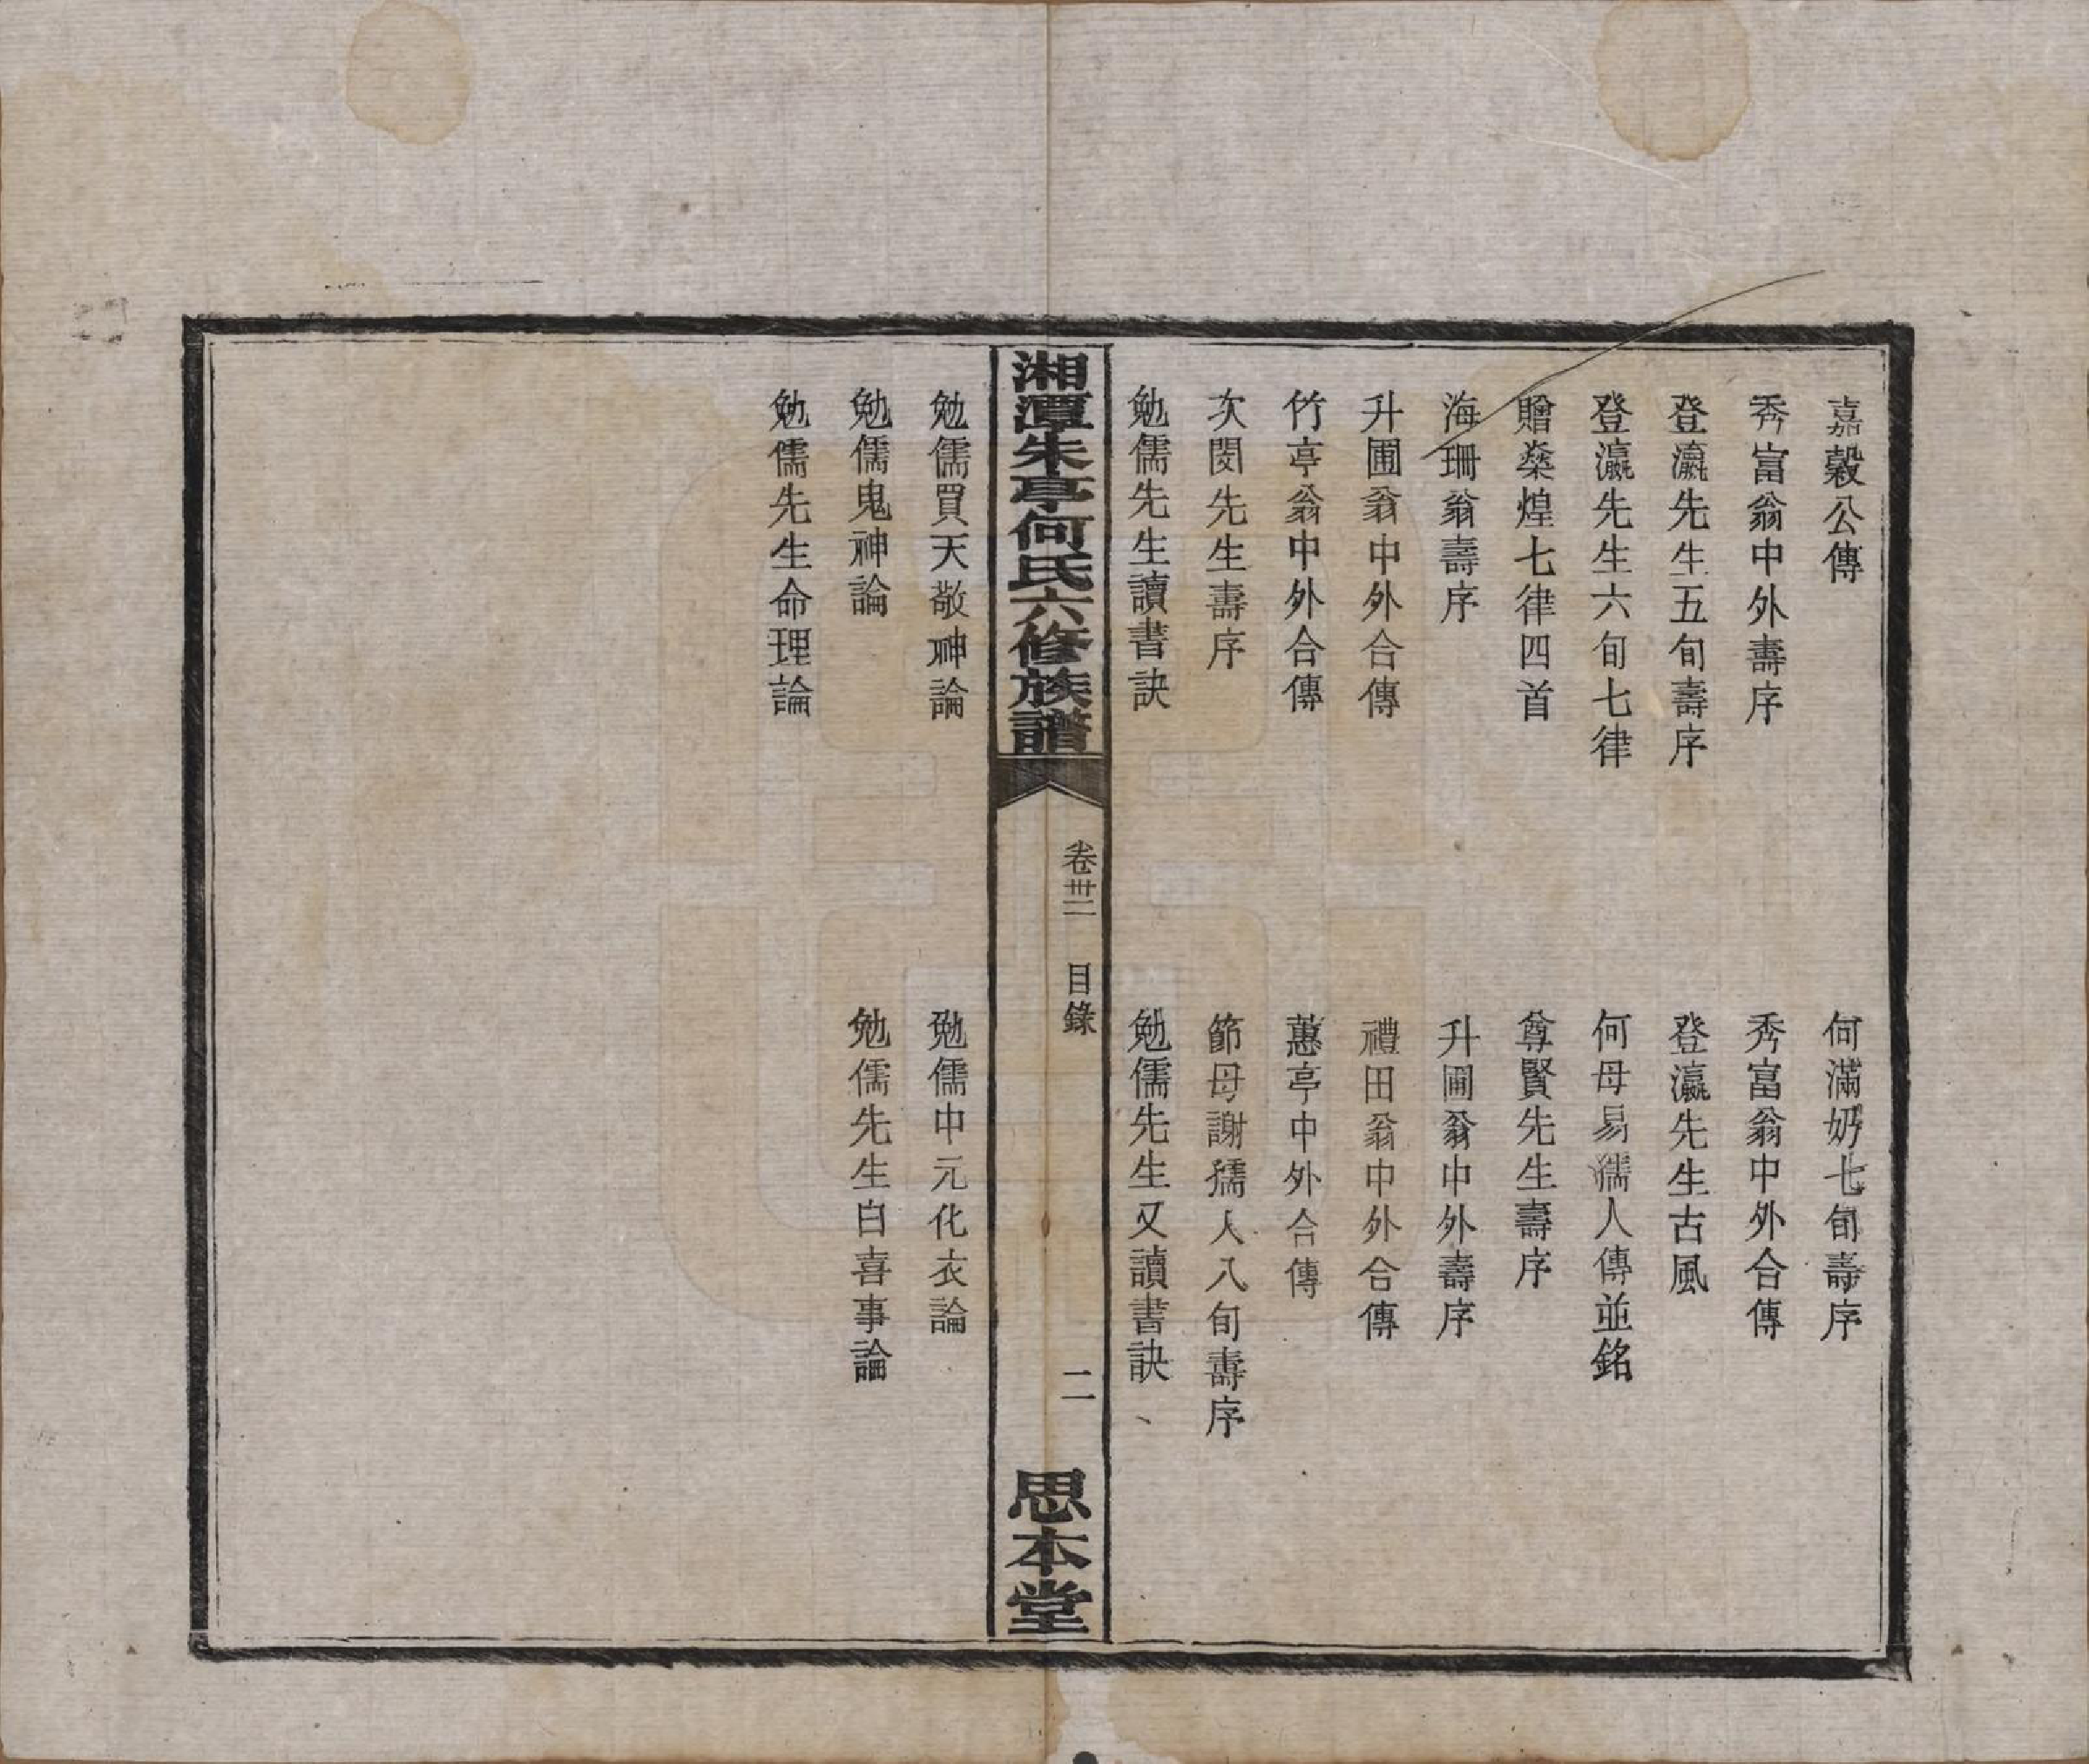 嘉穀公傳　何滿奶七旬壽序
秀富翁中外壽序　秀富翁中外合傳
登瀛先生五旬壽序　登瀛先生古風
登瀛先生六旬七律　何母易孺人傳並銘
贈燊煌七律四首　尊賢先生壽序
海珊翁壽序　升圃翁中外壽序
升圃翁中外合傳　禮田翁中外合傳
竹亭翁中外合傳　蕙亭中外合傳
次閔先生壽序　節母謝孺人八旬壽序
勉儒先生讀書訣　勉儒先生又讀書訣
湘潭朱亭何氏六修族譜　卷卅二　目錄　二　思本堂
勉儒買天敬神論　勉儒中元化衣論
勉儒鬼神論　勉儒先生白喜事論
勉儒先生命理論